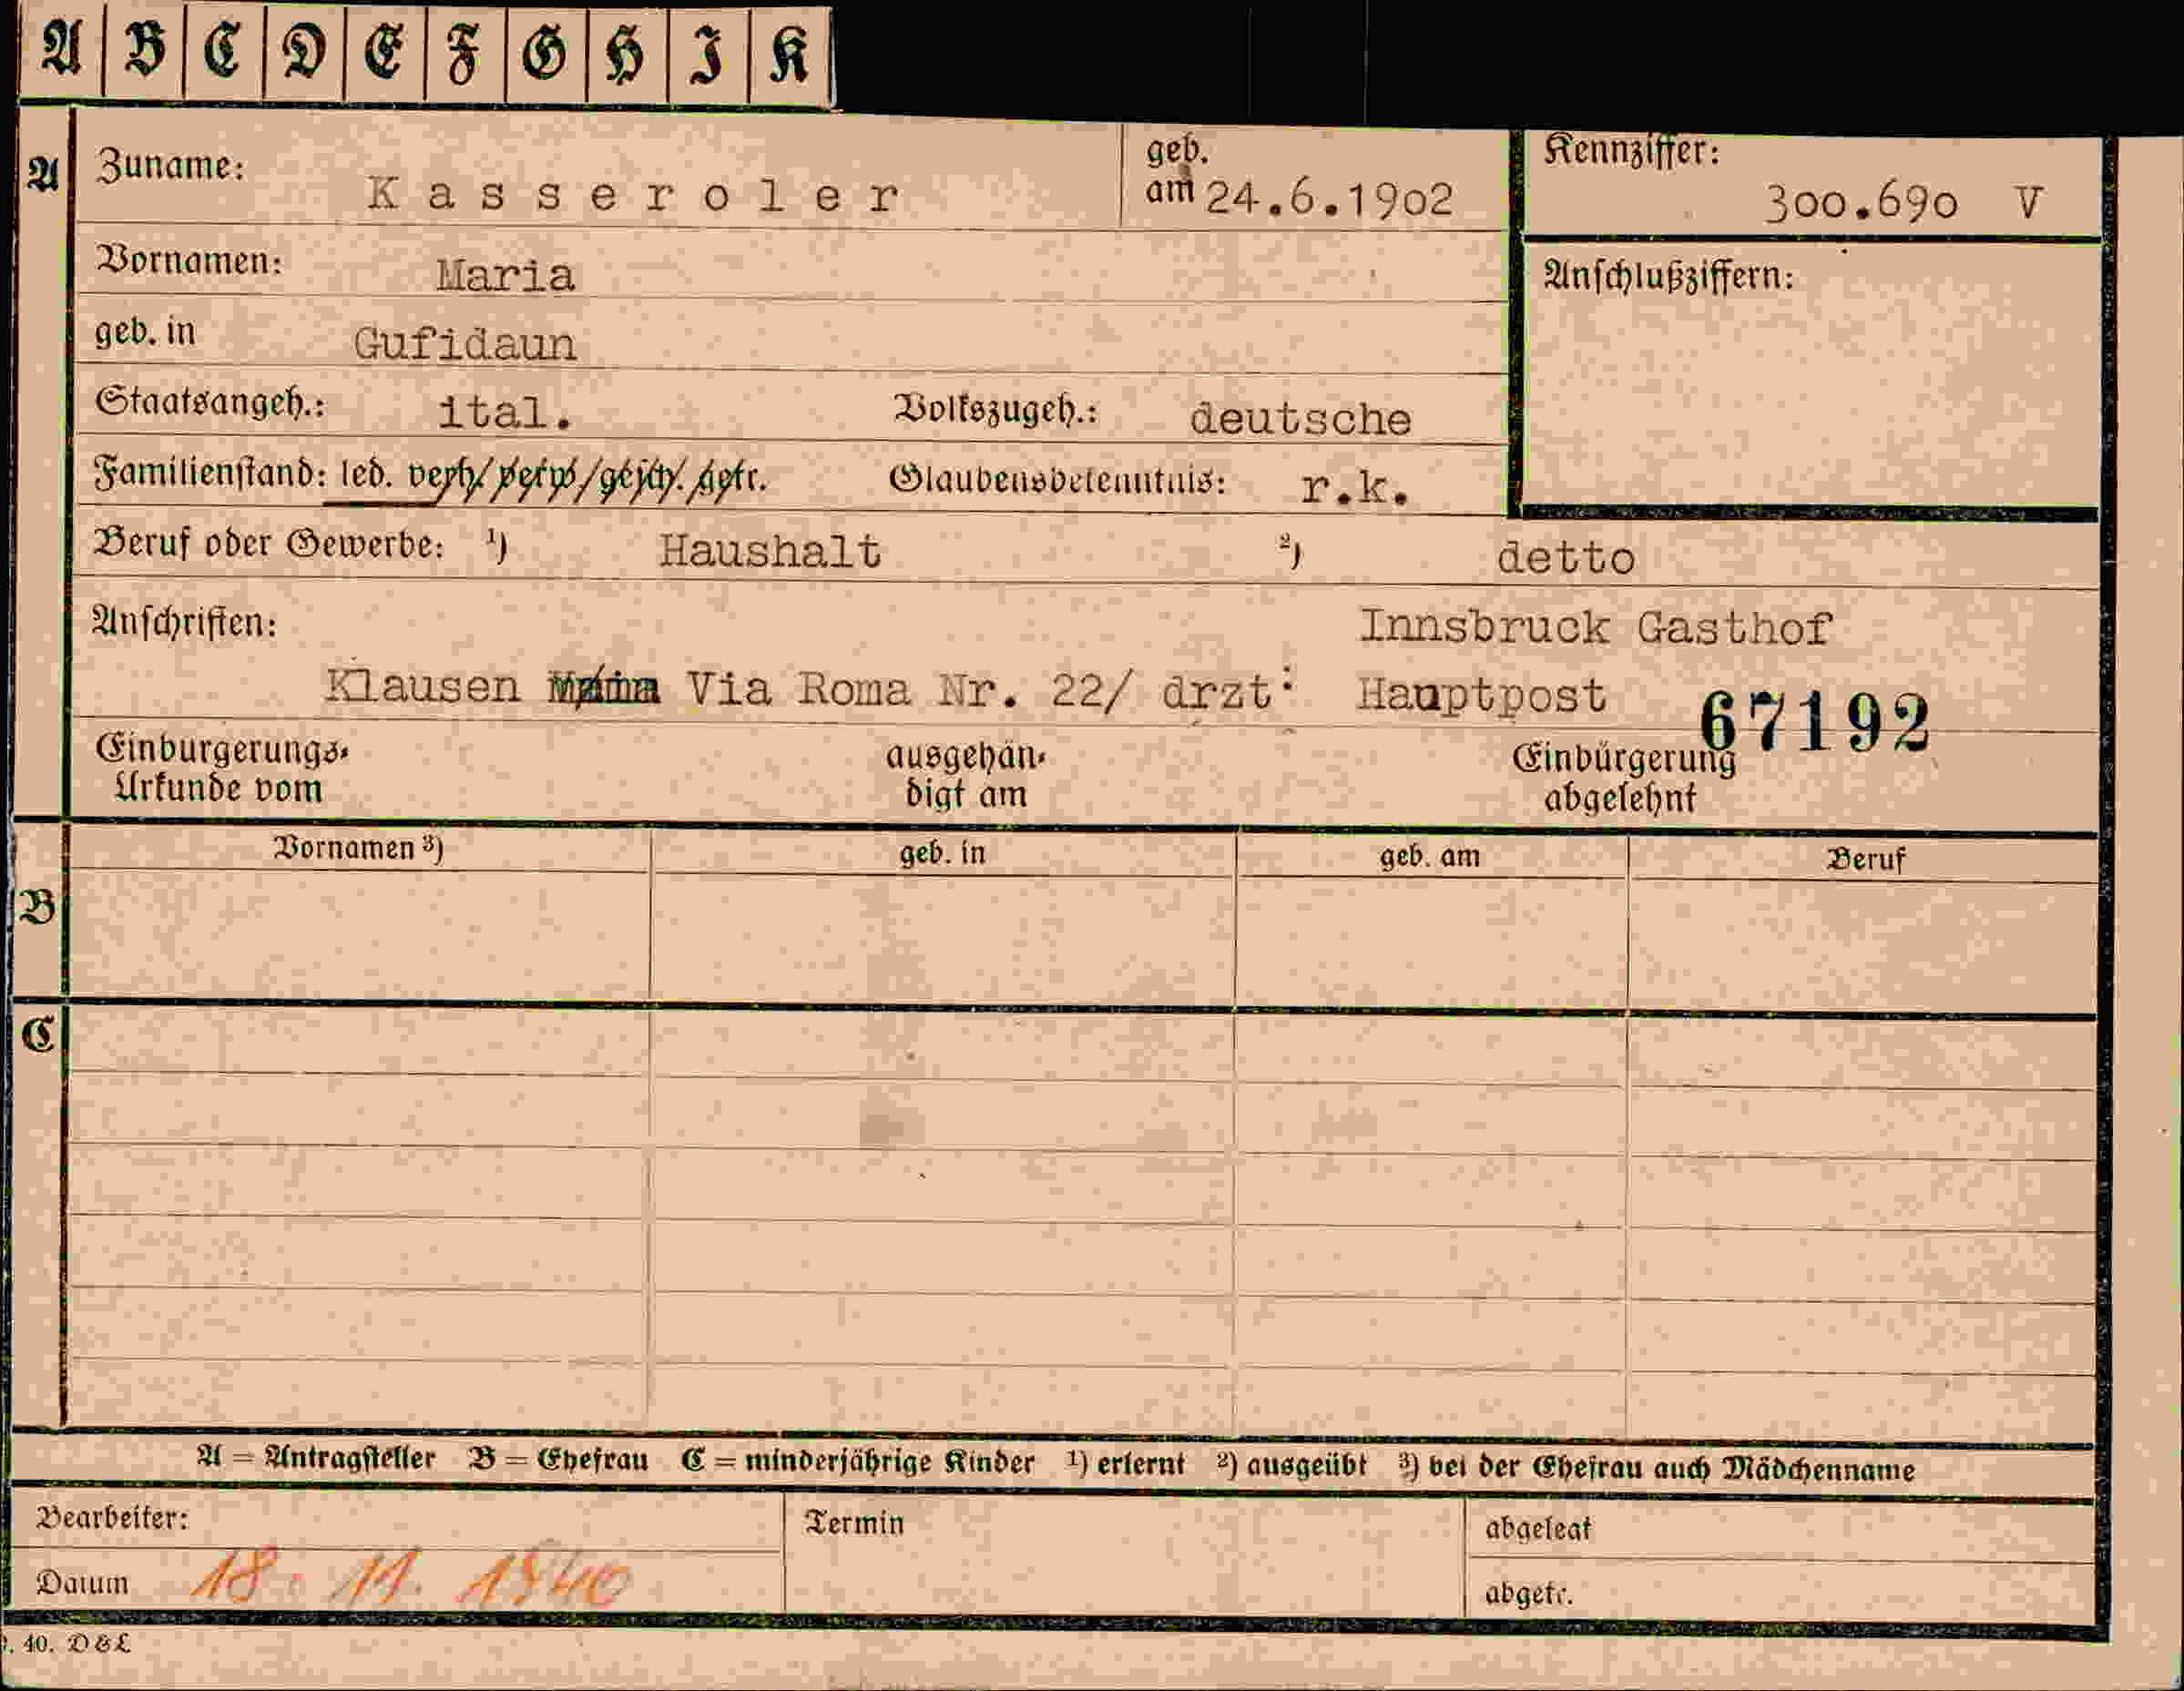 A B C D E F G H I K
A Zuname: Kasseroler geb. am 24.6.1902 Kennziffer: 300.690 V
Vornamen: Maria Anschlußziffern:
geb. in Gufidaun
Staatsangeh.: ital. Volkszugeh.: deutsche
Familienstand: led. verh./verw./gesch./getr. Glaubensbekenntnis: r.k.
Beruf oder Gewerbe: ¹) Haushalt ²) detto
Anschriften: Innsbruck Gasthof
Klausen Via Roma Nr. 22/ drzt: Hauptpost 67192
Einbürgerungs- ausgehän- Einbürgerung
Urkunde vom digt am abgelehnt
Vornamen ³) geb. in geb. am Beruf
B
C
A = Antragsteller B = Ehefrau C = minderjährige Kinder ¹) erlernt ²) ausgeübt ³) bei der Ehefrau auch Mädchenname
Bearbeiter: Termin abgelegt
Datum 18. 11. 1940 abgefr.
40. D&L